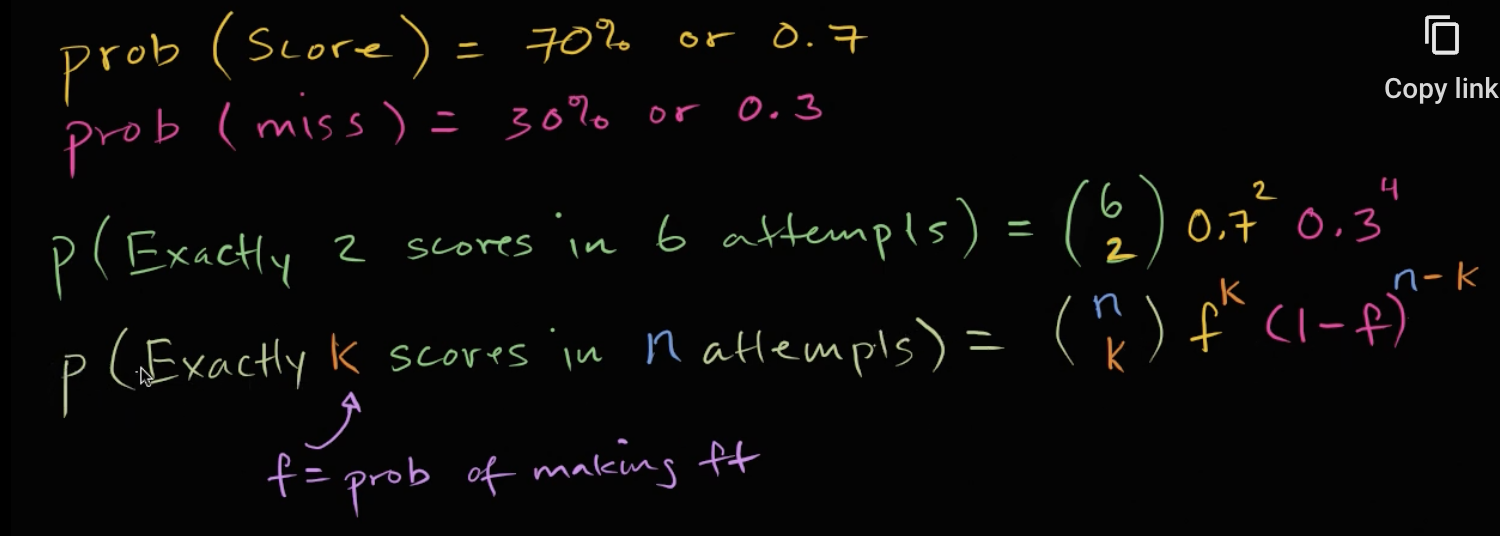 prob (Score) = 70% or 0.7
Copy link
prob (miss) = 30% or 0.3
P(Exactly 2 scores in 6 attempts) = (6 2) 0.7² 0.3⁴
P(Exactly k scores in n attempts) = (n k) f^k (1-f)^n-k
f = prob of making ft